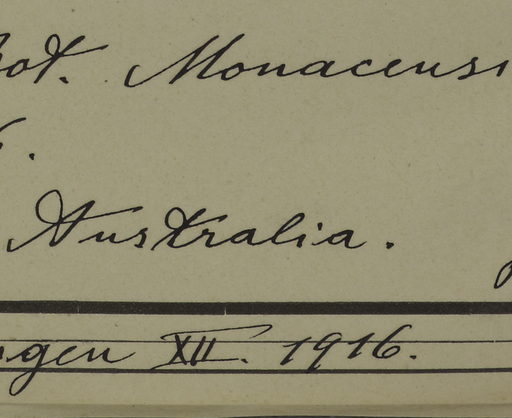 Bot. Monacensi
Australia.
ngen XII. 1916.